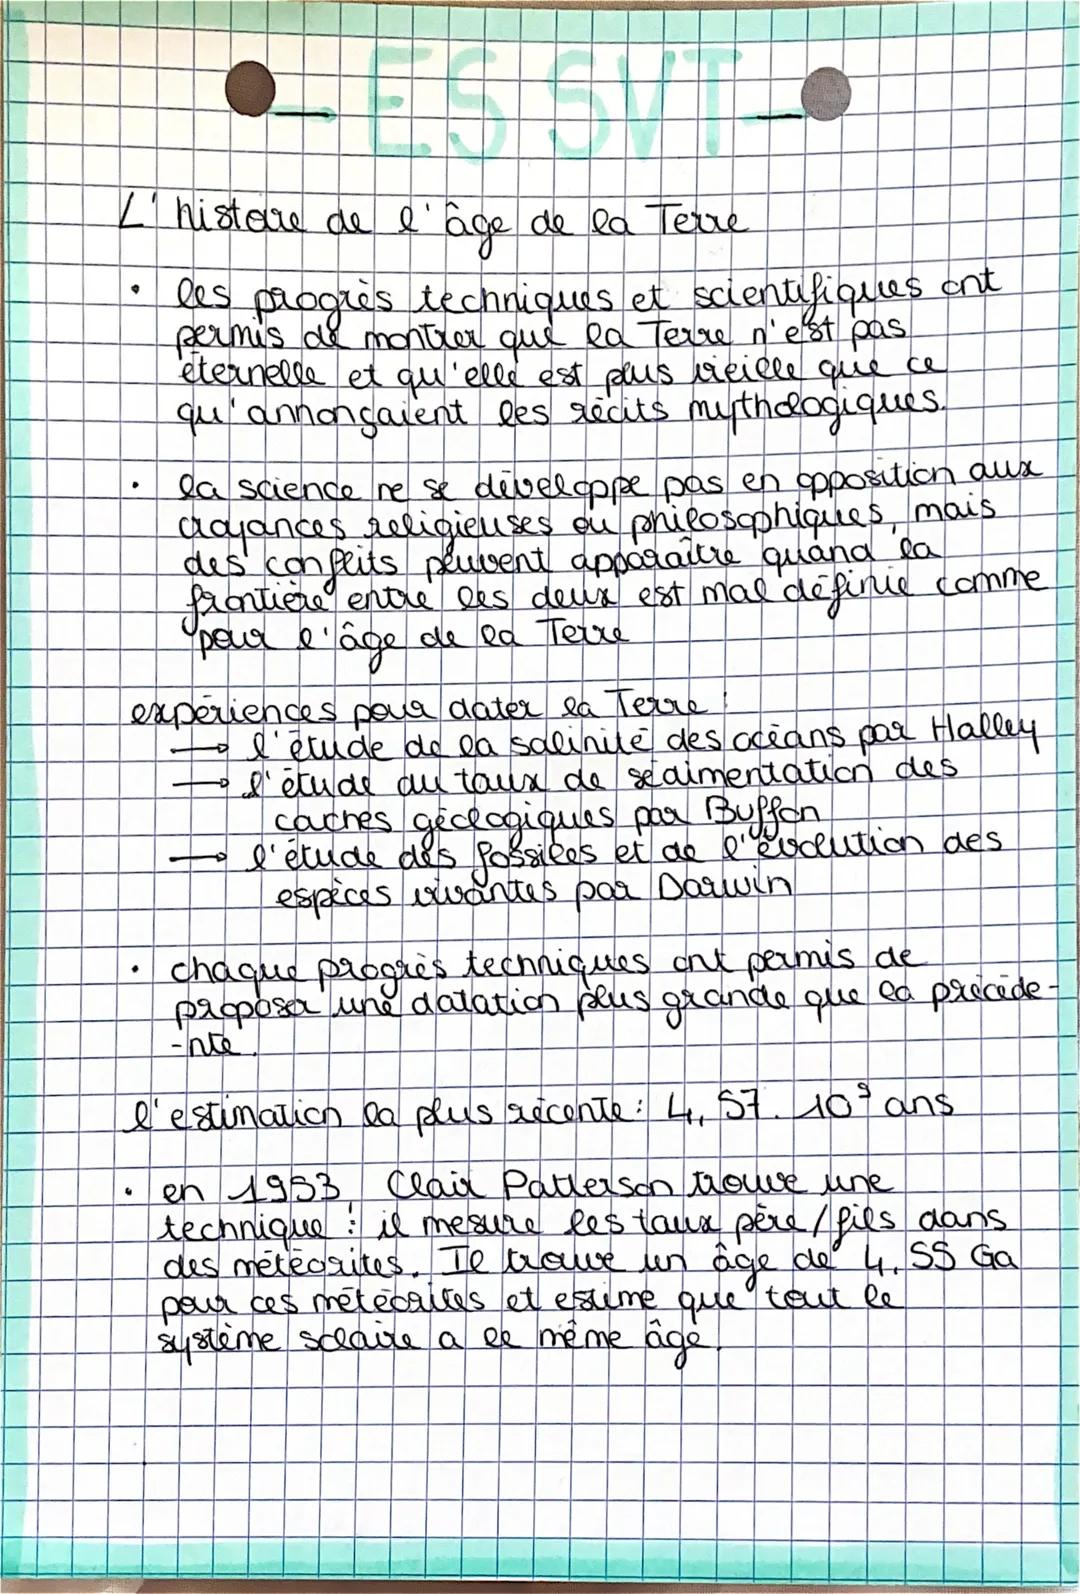 - ES SVT -
L'histoire de l'âge de la Terre
• les progrès techniques et scientifiques ont
permis de montrer que la Terre n'est pas
éternelle et qu'elle est plus vieille que ce
qu'annonçaient les récits mythologiques.
• la science ne se développe pas en opposition aux
croyances religieuses ou philosophiques, mais
des conflits peuvent apparaître quand la
frontière entre les deux est mal définie comme
pour l'âge de la Terre
expériences pour dater la Terre :
→ l'étude de la salinité des océans par Halley
→ l'étude du taux de sédimentation des
couches géologiques par Buffon
→ l'étude des fossiles et de l'évolution des
espèces vivantes par Darwin
• chaque progrès techniques ont permis de
proposer une datation plus grande que la précéde-
-nte.
l'estimation la plus récente : 4,57. 10⁹ ans
• en 1953, Clair Patterson trouve une
technique : il mesure les taux père/fils dans
des météorites. Il trouve un âge de 4,55 Ga
pour ces météorites et estime que tout le
système solaire a le même âge.